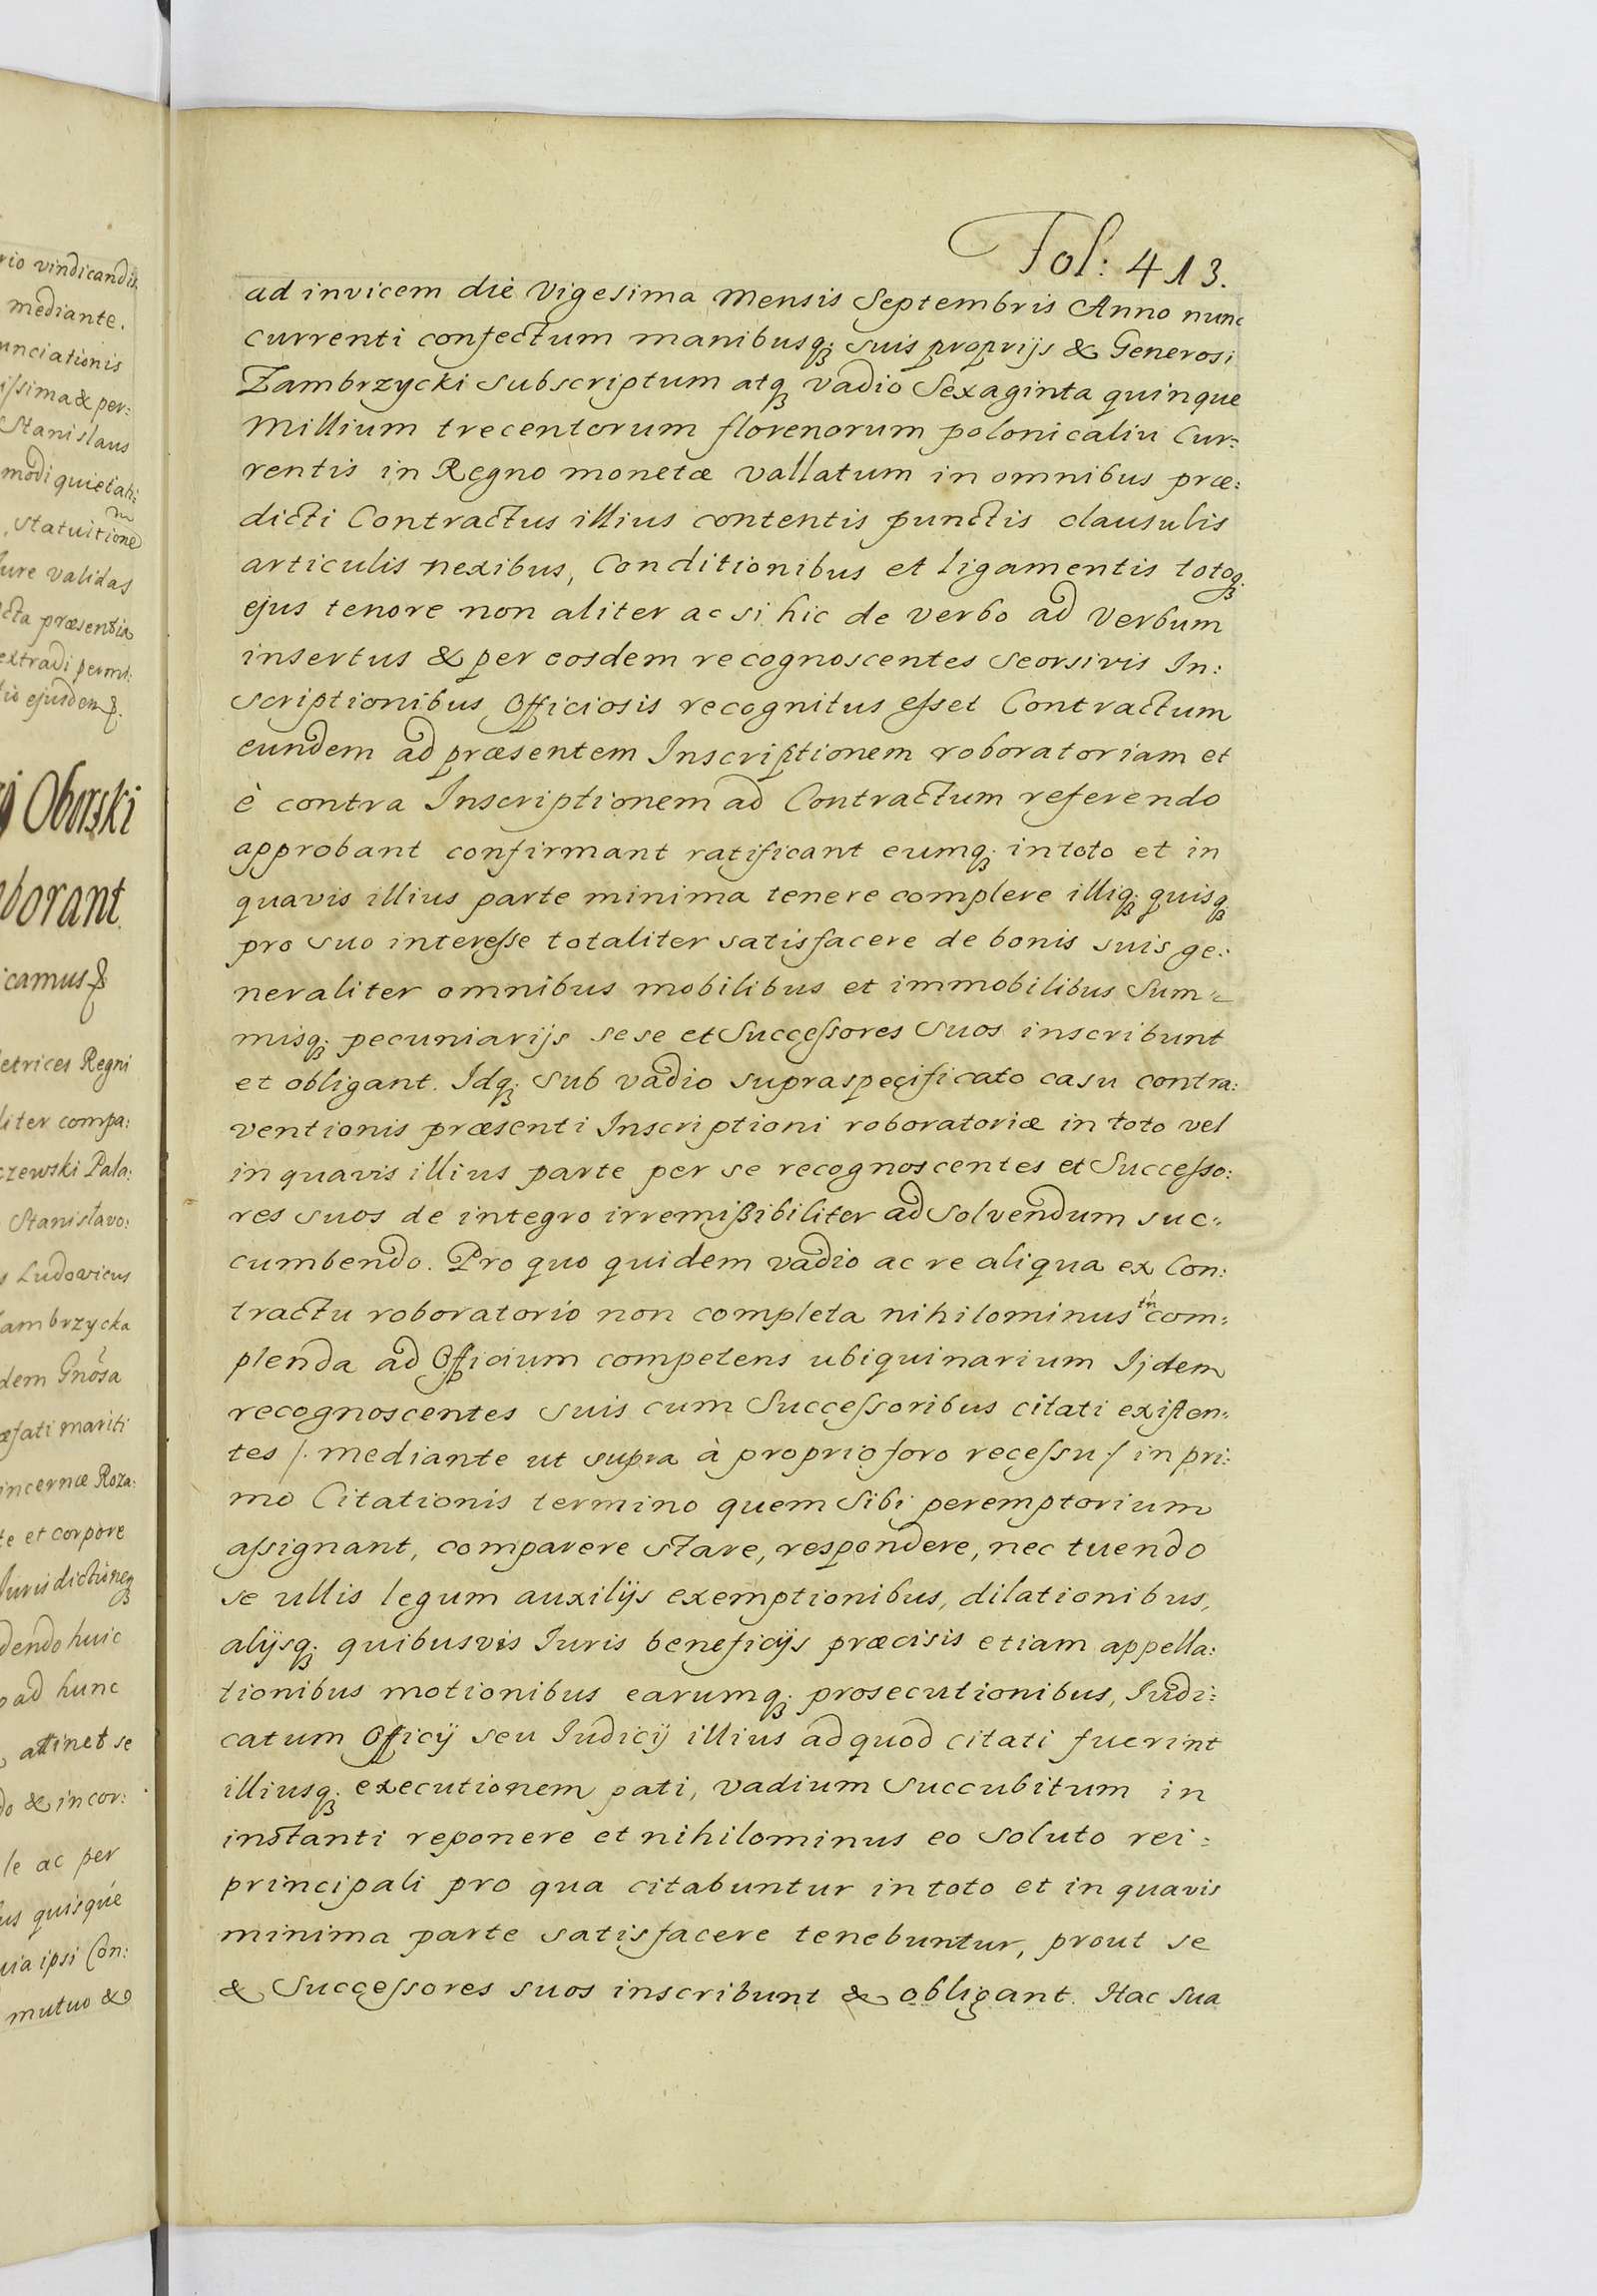 rio vindicandis.
mediante.
unciationis
issima & per:
Stanislaus
modi quietati:
statuitione
Iure validas
cta præsentia
extradi permi:
tio ejusdem
Oborski
borant.
icamus
etrices Regni
liter compa:
czewski Pala:
Stanisłavo:
s Ludovicus
Zambrzycka
dem Gnosa
æfati mariti
incernæ Roza:
te et corpore
Iurisdictioneq3
dendo huic
o ad hunc
attinet se
do & incor:
le ac per
us quisque
uia ipsi Con:
mutuo &
Fol: 413.
ad invicem die Vigesima Mensis Septembris Anno nunc
currenti confectum manibusq3 suis proprijs & Generosi
Zambrzycki subscriptum atq3 vadio Sexaginta quinque
Millium trecentorum florenorum polonicaliu Cur:
rentis in Regno monetæ vallatum in omnibus præ:
dicti Contractus illius contentis punctis clausulis
articulis nexibus, Conditionibus et ligamentis totoq3
ejus tenore non aliter ac si hic de verbo ad Verbum
insertus & per eosdem recognoscentes seorsivis In:
scriptionibus Officiosis recognitus eſset Contractum
eundem ad præsentem Inscriptionem roboratoriam et
è contra Inscriptionem ad Contractum referendo
approbant confirmant ratificant eumq3 in toto et in
quavis illius parte minima tenere complere illiq3 quisq3
pro suo intereſse totaliter satisfacere de bonis suis ge:
neraliter omnibus mobilibus et immobilibus Sum:
misq3 pecuniarijs sese et Succeſsores Suos inscribunt
et obligant. Idq3 sub vadio supraspecificato casu contra:
ventionis præsenti Inscriptioni roboratoriæ in toto vel
in quavis illius parte per se recognoscentes et Succeſso:
res suos de integro irremißibiliter ad solvendum suc:
cumbendo. Pro quo quidem vadio ac re aliqua ex Con:
tractu roboratorio non completa nihilominus tn com:
plenda ad Officium competens ubiquinarium Ijdem
recognoscentes suis cum Succeſsoribus citati exiſten:
tes /. mediante ut supra à proprio foro receſsu ./ in pri:
mo Citationis termino quem Sibi peremptorium
aſsignant, comparere stare, respondere, nec tuendo
se ullis legum auxilijs exemptionibus, dilationibus,
alijsq3 quibusvis Iuris beneficijs præcisis etiam appella:
tionibus motionibus earumq3 prosecutionibus, Iudi:
catum Officij seu Iudicij illius ad quod citati fuerint
illiusq3 executionem pati, vadium succubitum in
instanti reponere et nihilominus eo soluto rei:
principali pro qua citabuntur in toto et in quavis
minima parte satisfacere tenebuntur, prout se
& Succeſsores suos inscribunt & obligant. Hac Sua